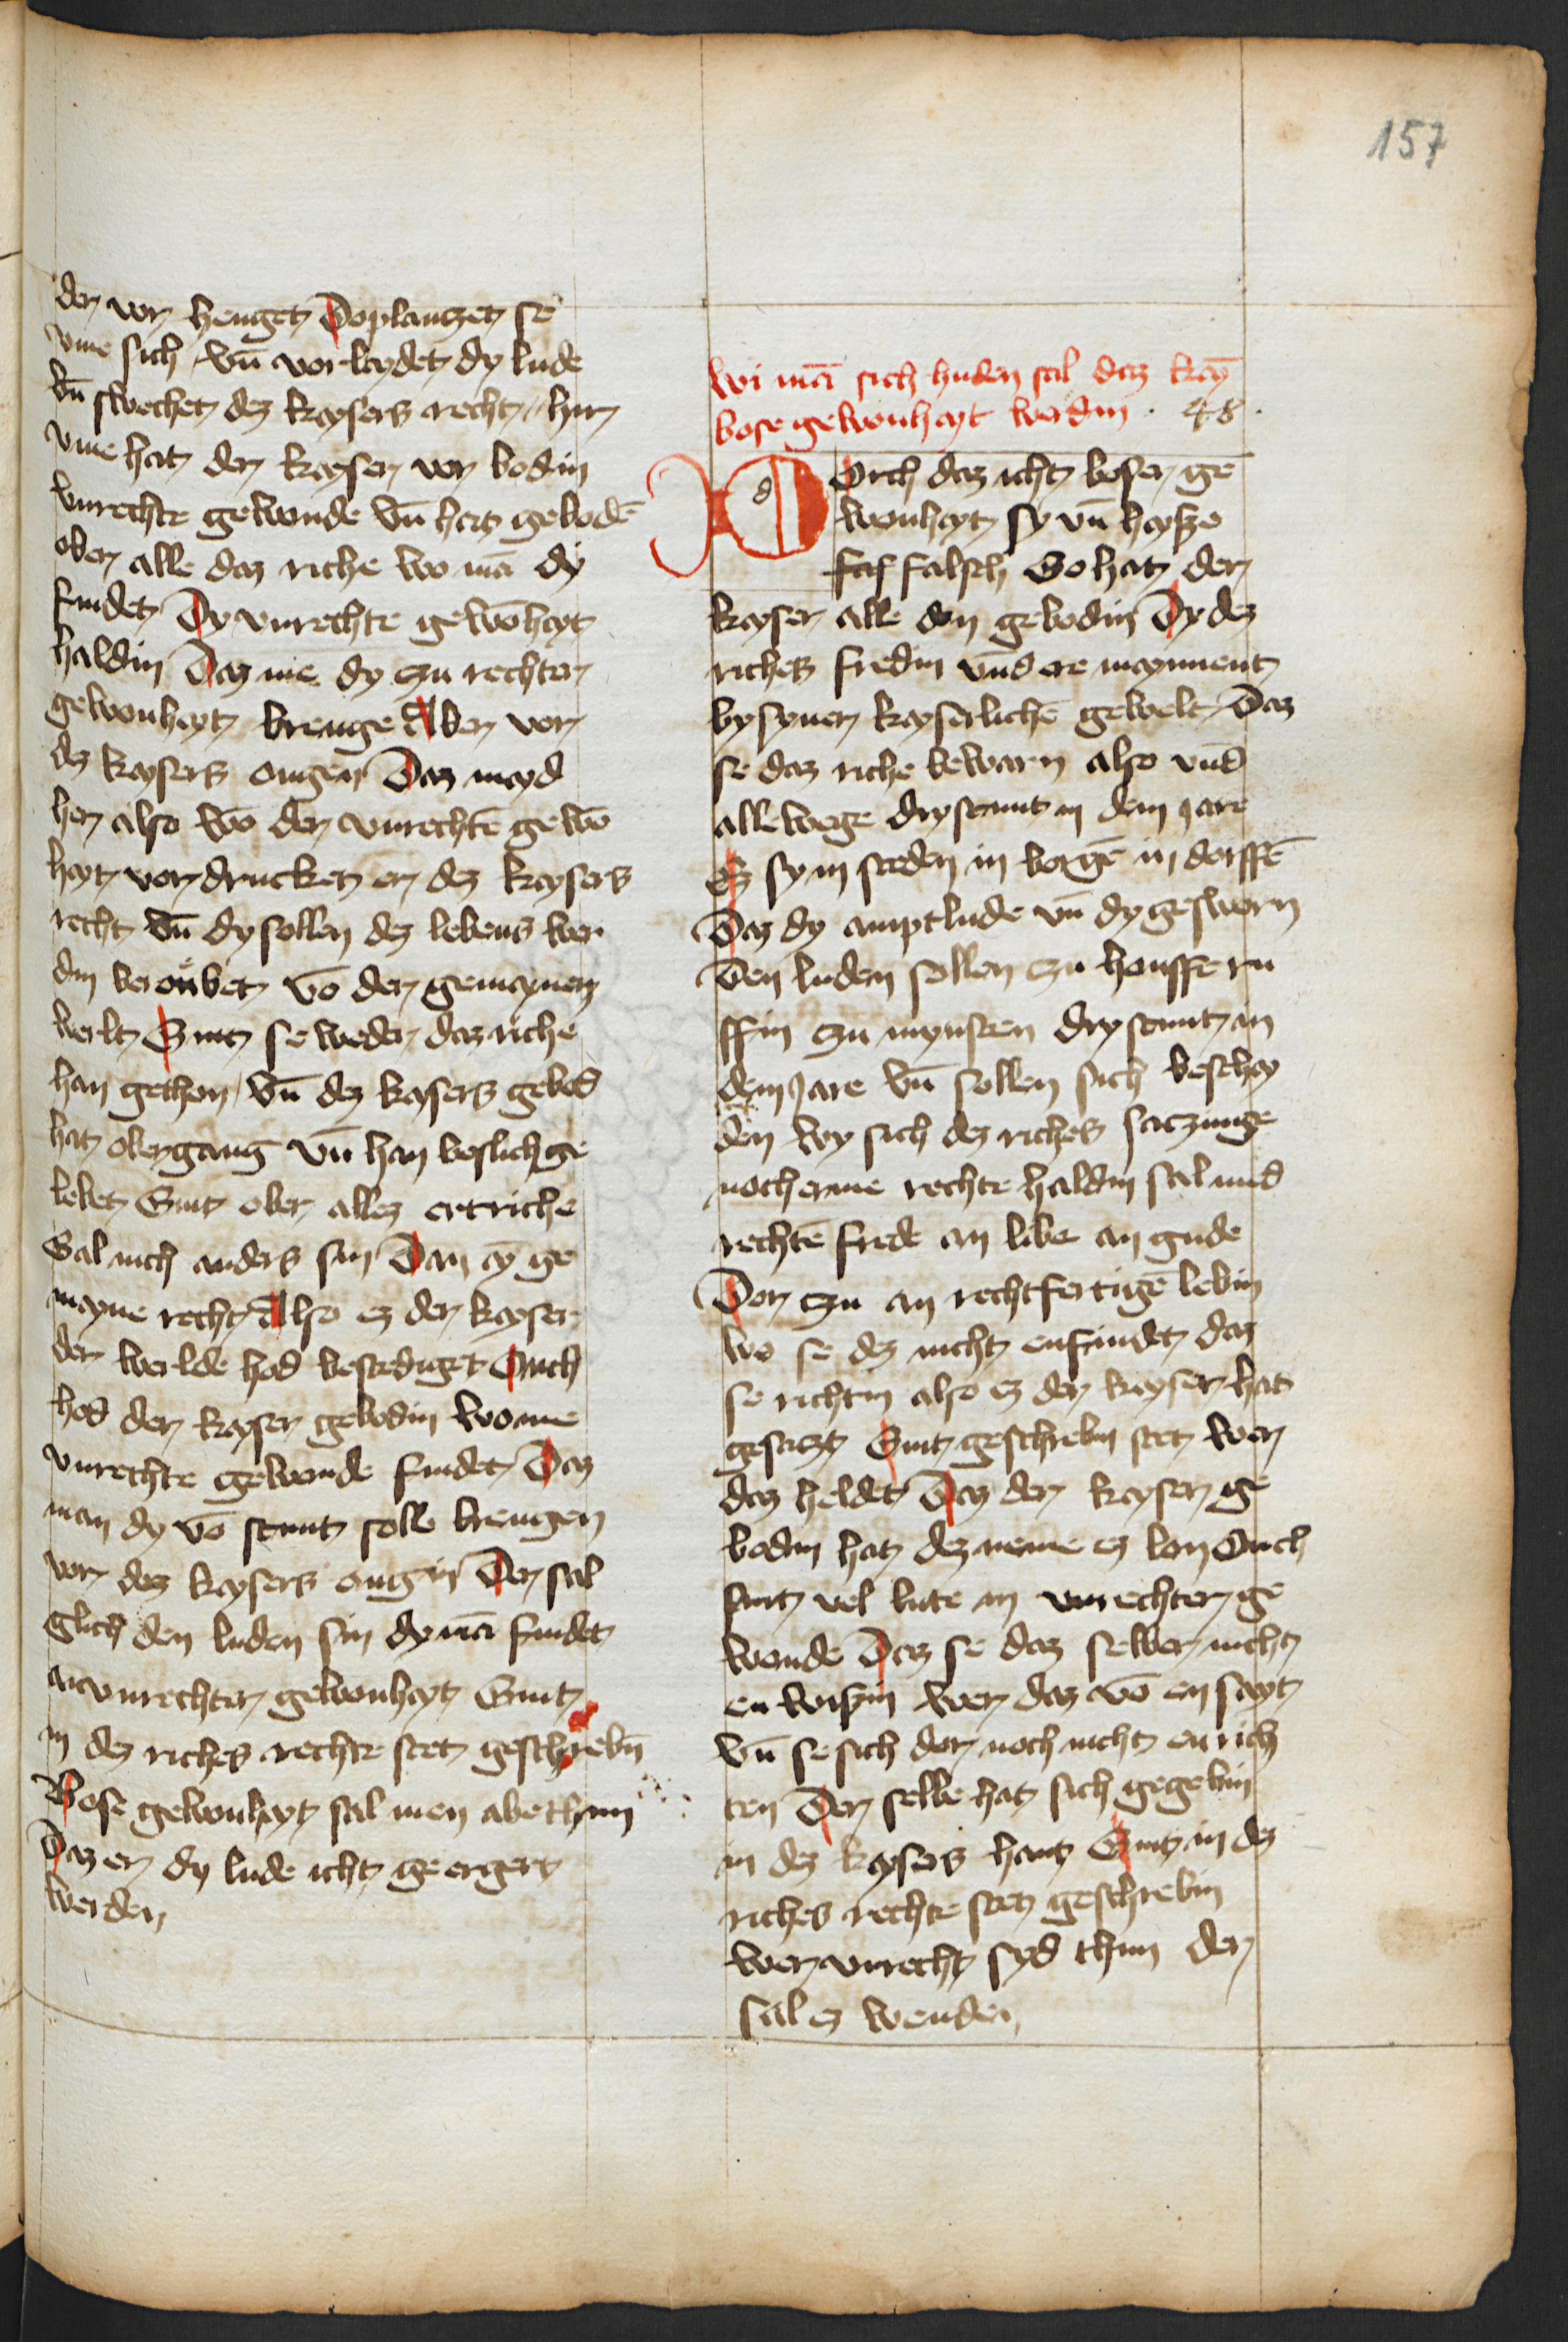 157
der vor henget Doplanczet se
vme sich vn̄ vorleydet dy lude
vn̄ swechet dez kaysers recht hir
vme hat der kayser vor bodin
vnrechte gewonde vn̄ hat gebodē
ober alle daz riche wo mā dy
findet Dy vnrechte gewōhayt
haldin Daz me dy zu rechter
gewonhayt brenge Aber vor
dez kaysers ougen Daz mayd
her also wō der vnrechtē gewō
hayt vor drucket er dez kaysers
recht vn̄ dy sollen dez lebens wer
din beroůbet vō der gemaynen
werlt Sint se weder daz riche
han gethon vn̄ dez kaysers gebod
hat obergang vn̄ han boslich ge
lebet Sint ober allez ertriche
Sal nich anders sin Dan ey ge
mayne recht Also ez der kayser
der werlde hod bestediget Ouch
hod der kayser gebodin wo me
vnrechte gewonde findet Daz
man dy vō stunt solle brengen
vor dez kaysers ougin Der sal
glich den luden sin dy mā findet
an vnrechter gewonhayt Sint
in dez riches rechte stet geschrebn̄
Bose gewonhayt sal men abethun
Daz er dy lude icht ge ergert
werden
wi mā sich huden sal daz kay
bose gewonhayt werdin . 48 .
d Orch daz icht boser ge
wonhayt sy vn̄ haysze
fas falsch So hat der
kayser alle den gebodin Dy dez
riches fredin vnd ere maynnent
by syner kayserlichē gewelt Daz
se daz riche bewarn also vnd
alle wege dry stunt in dem jare
Ez sy in steden in borgē in dorffē
Daz dy amptlude vn̄ dy gesworn
Den luden sollen zu houffe ru
ffin zu mynsten dry stunt in
dem jare vn̄ sollen sich beschay
den wy sich dez riches saczunge
noch erme rechte haldin sal vnd
rechtē frede an libe an gude
Dor zu an rechtfertigē lebin
wo se dez nicht enfindet daz
se richtin also ez der kayser hat
gesaczt Sint geschrebin stet wer
daz heldet Daz der kayser ge
bodin hat dez neme ez lon Ouch
sint vel lute in vnrechter ge
wonde Daz se daz selber nicht
en wiszin wer daz vō en sayt
vn̄ se sich dor noch nicht en rich
ten Der selbe hat sich gegebin
in dez kaysers hant Sint in dez
riches rechte stet geschrebin
wer vnrecht syd thun der
sal ez wenden